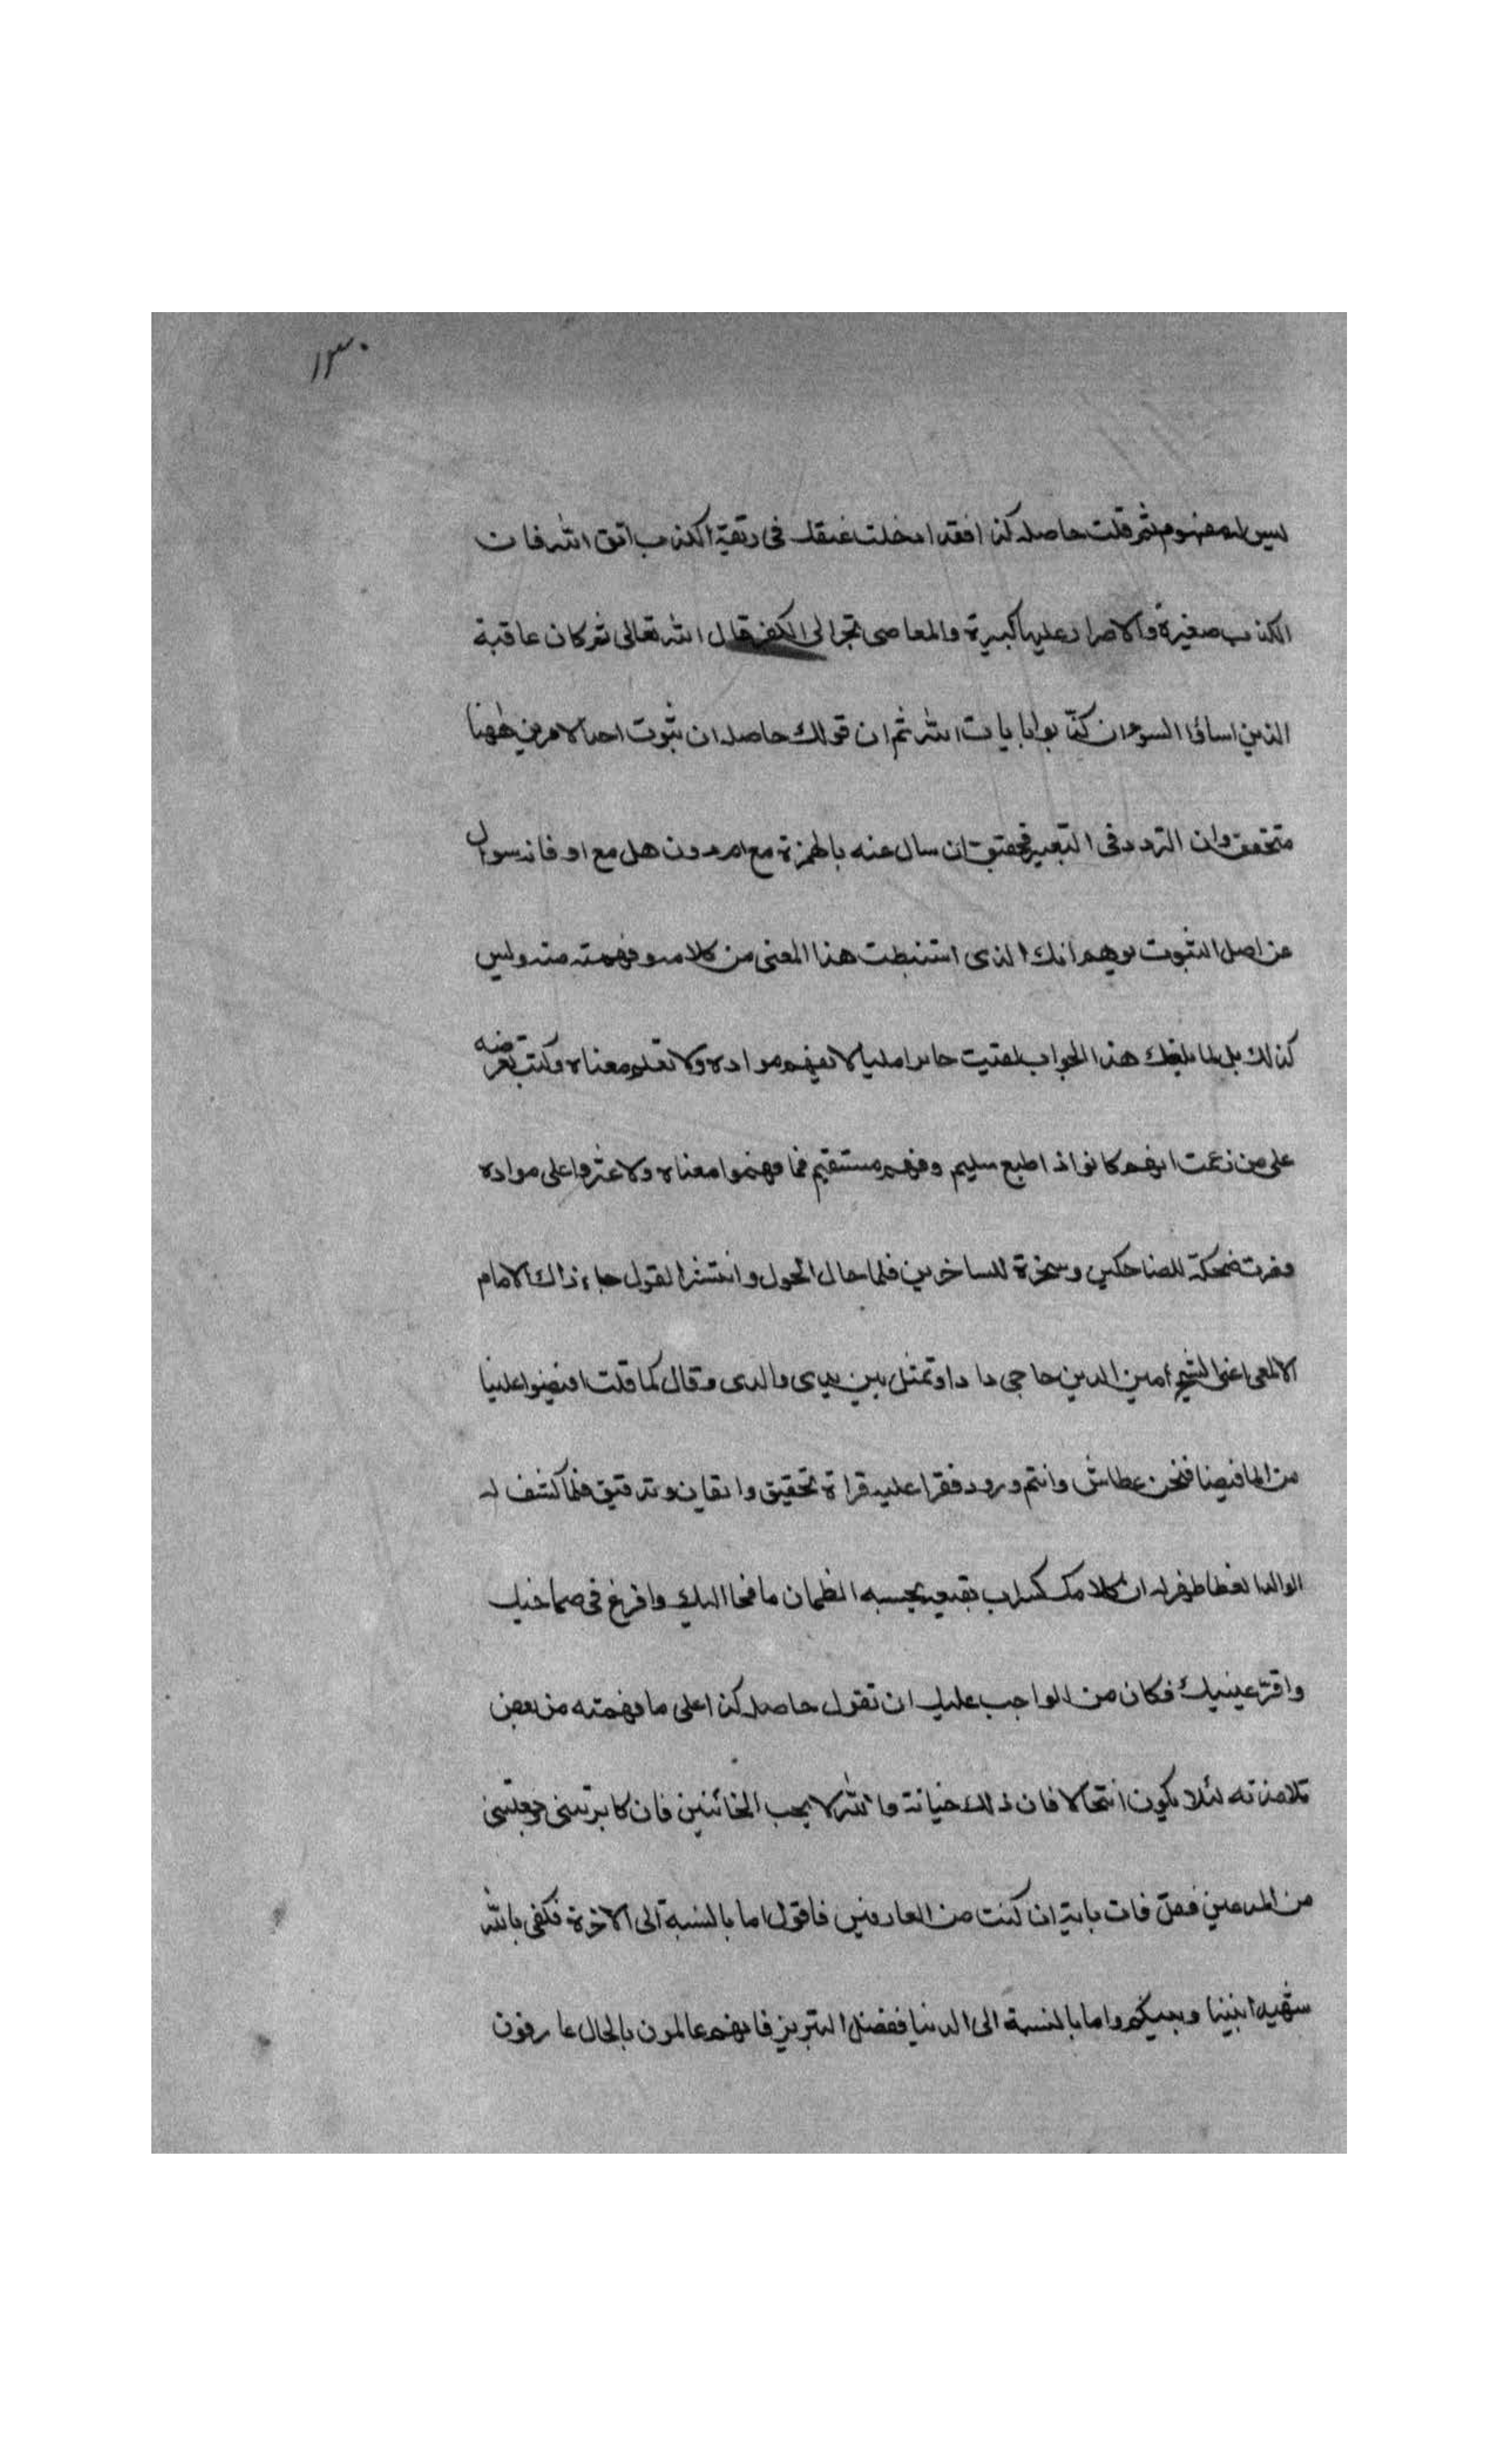 ١٣٠
ليس له مفهوم ثم قلت حاصله كذا فقد ادخلت عنقك فى ربقة الكذب اتق الله فان
الكذب صغيرة والاصرار عليها كبيرة والمعاصى تجر الى الكفر قال الله تعالى ثم كان عاقبة
الذين اساؤا السوء ان كذّبوا بايات الله ثم ان قولك حاصله ان ثبوت احد الامرين ههنا
متحقق وان التردد فى التعيين فحقيق ان سال عنه بالهمزة مع ام دون هل مع او فانه سوال
عن اصل الثبوت يوهم انك الذى استنبطت هذا المعنى من كلامه وفهمته منه وليس
كذلك بل لما بلغك هذا الجواب بقيت حايرا مليا لا تفهم مراده ولا تعلم معناه وكنت تعرضه
على من زعمت انهم كانوا ذا طبع سليم وفهم مستقيم فما فهموا معناه ولا عثروا على مراده
وصرت ضحكة للضاحكين وسخرة للساخرين فلما حال الحول وانتشر القول جاء ذاك الامام
الالمعى اعنى الشيخ امين الدين حاجى دادا وتمثل بين يدى والدى وقال كما قلت افيضوا علينا
من الما فيضا فنحن عطاش وانتم ورود فقرا عليه قراة تحقيق واتقان وتدقيق فلما كشف له
الوالد الغطا ظهر له ان كلامك كسراب بقيعة يحسبه الظمان ما فجا اليك وافرغ فى صماخيك
واقرّ عينيك فكان من الواجب عليك ان تقول حاصله كذا على ما فهمته من بعض
تلامذته لئلا يكون انتحالا فان ذلك خيانة والله لا يحب الخائنين فان كابرتنى وجعلتنى
من المدعين فقل فات باية ان كنت من العارفين فاقول اما بالنسبة الى الاخرة فكفى بالله
شهيدا بيننا وبينكم واما بالنسبة الى الدنيا ففضلا التبريز فانهم عالمون بالحال عارفون